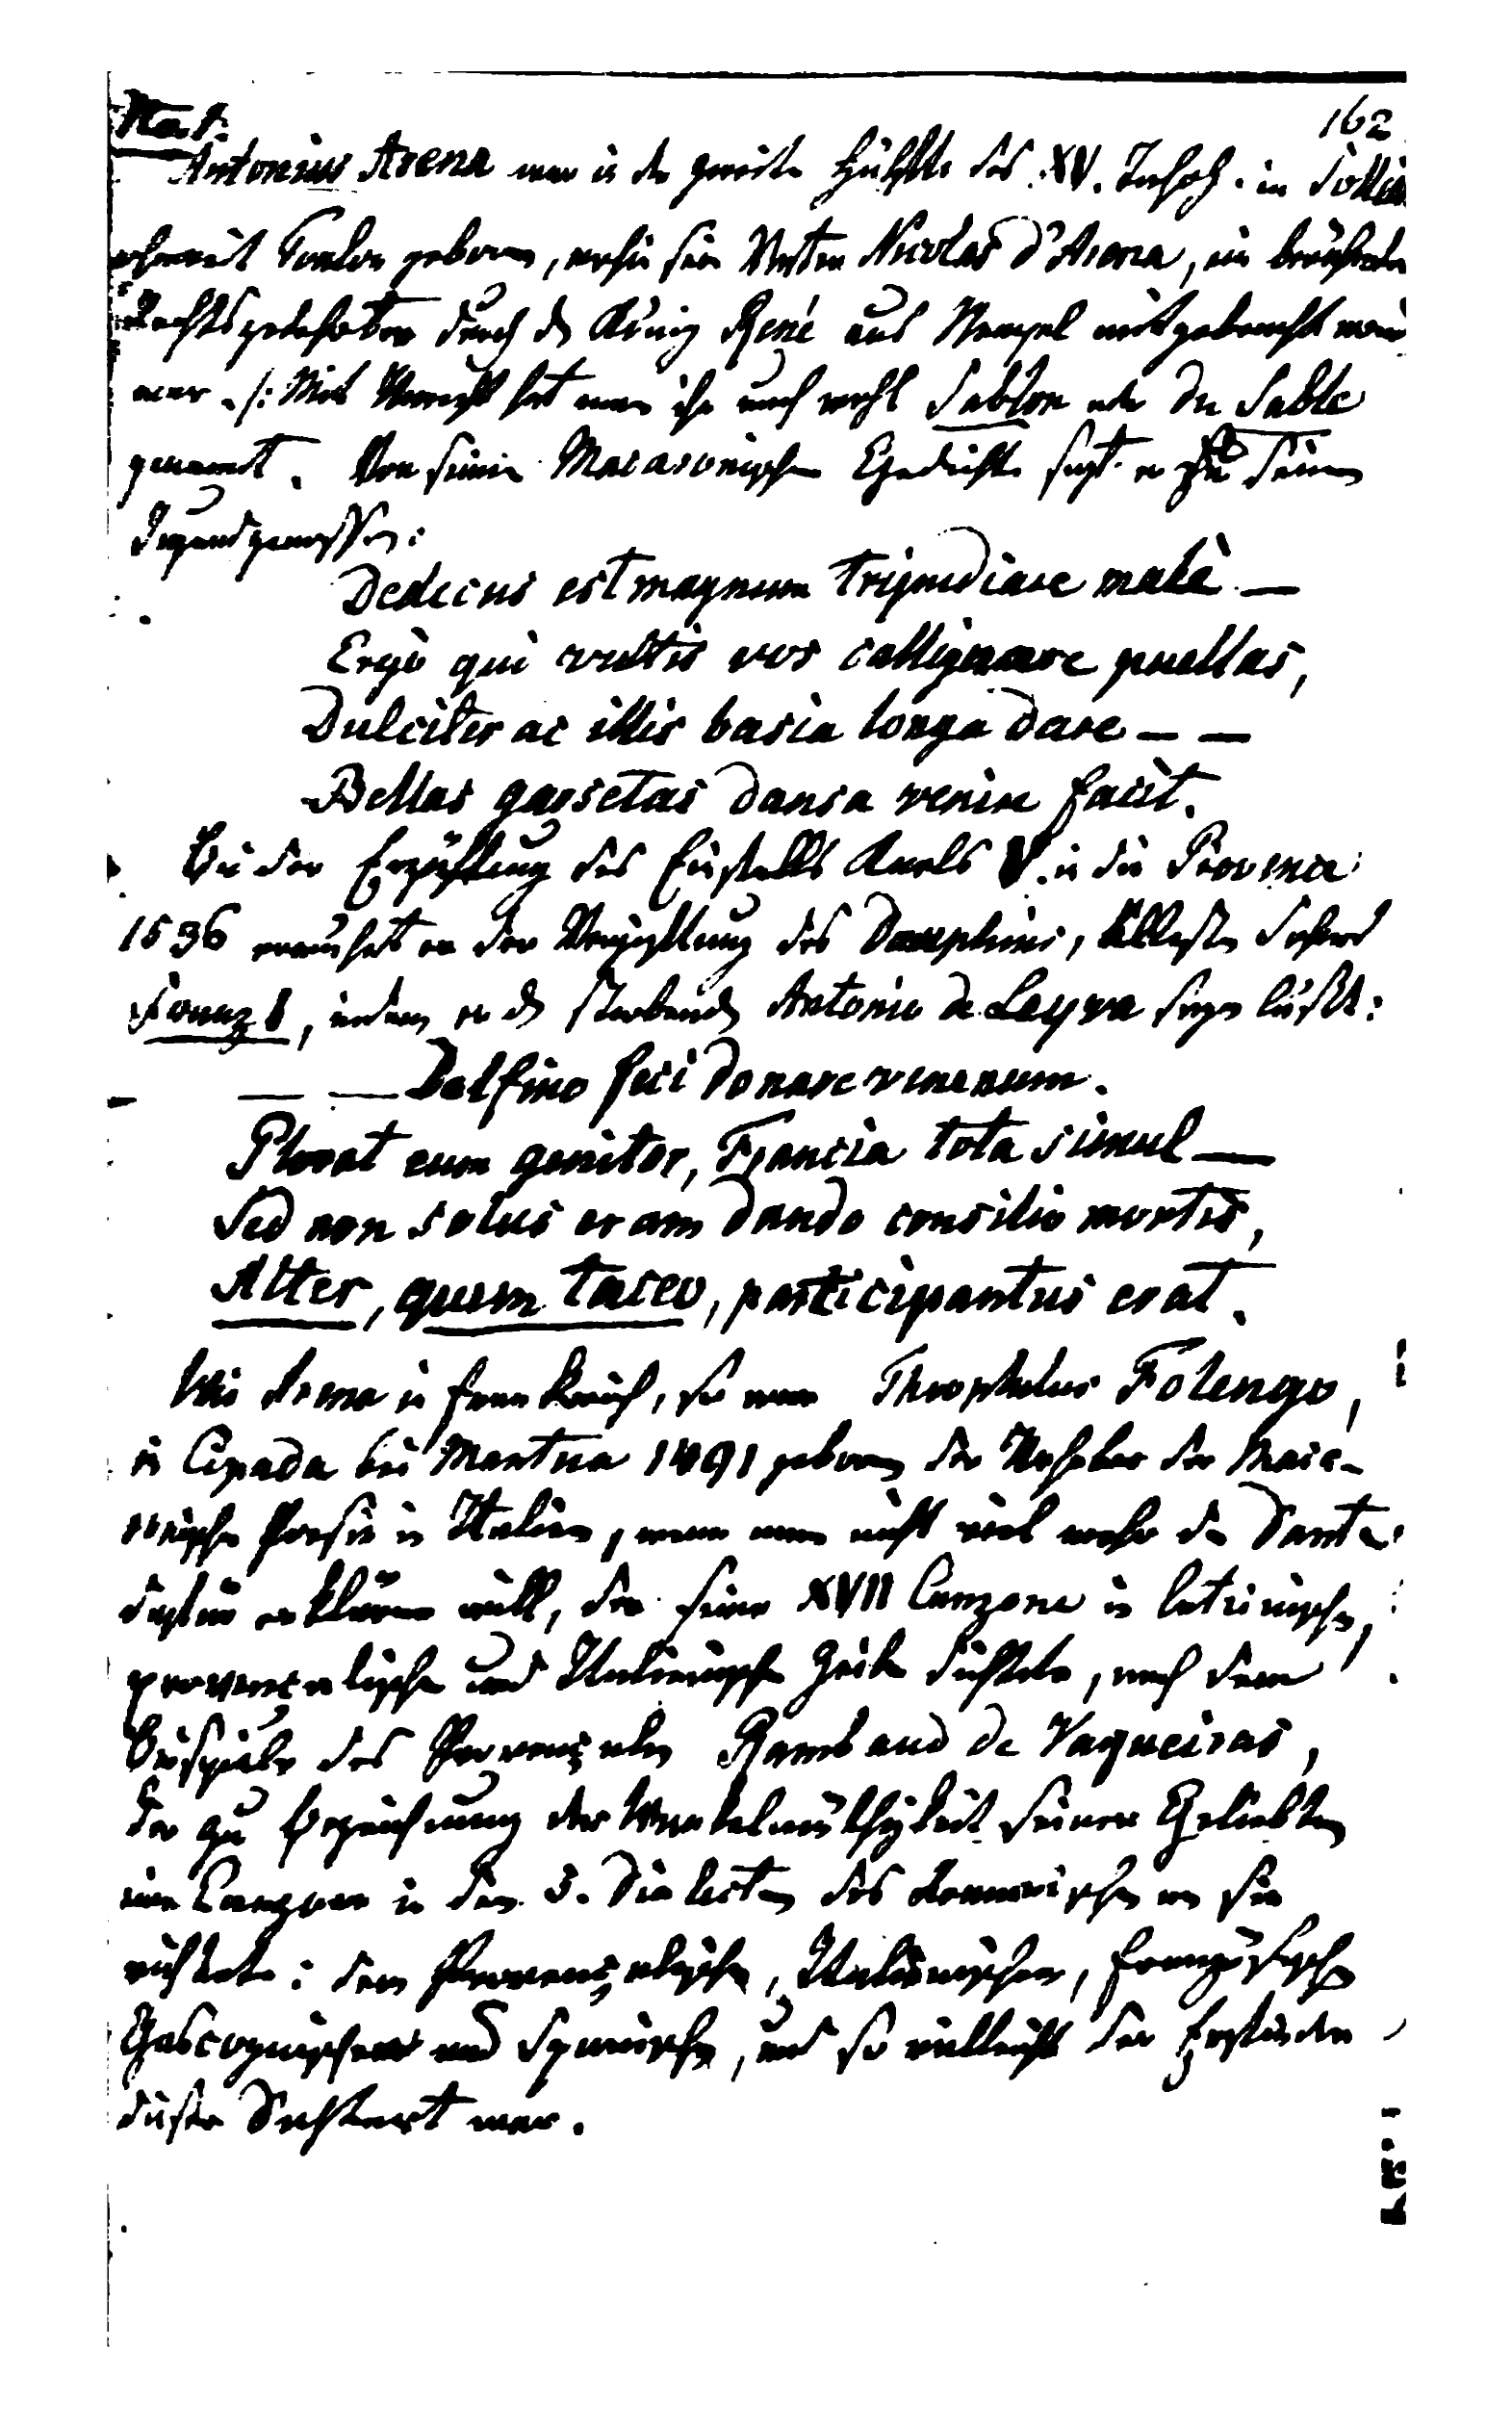 162
Antonius Arena war in der zweite Hälfte des XV. Jahrh. in Sollie
ohnweit Toulon geboren, wohin sein Vater Nicolas d'Arena, ein berühmter
Rechtsgelehrter durch den König René aus Neapel mitgebracht word
war. /: Mit Unrecht hat man ihn auch wohl Sablon oder Du Sable
genannt. Von seinen Macaronischen Gedichte sagt er zu seinen
Jugendgenossen:
Dedecus est magnum tripudiare malè —
Ergò qui vultis vos callignare puellas,
Dulciter ac illis basia longa dare — —
Bellas garsetas dansa venire facit.
Bei der Erzählung des Einfalls Karls V. in die Provence
1536 erwähnt er der Vergiftung des Dauphins, ältesten Sohns
Franz I, indem er den sterbenden Antonio de Leyva sagen läßt:
— — Delfino feci donare venenum.
Plorat eum genitor, Francia tota simul —
Sed non solus eram dando consilio mortis,
Alter, quem taceo, participantus erat.
Wie Arena in Frankreich, so war Theophilus Folengo,
in Cipada bei Mantua 1491 geboren der Urheber der Maca-
ronische Poesie in Italien, wenn man nicht viel mehr den Dante
dafür erklären will, der seine XVII Canzone in lateinischen,
provencalische und Italienische Zeilen dichtete, nach dem
Beispiele des Provenzalen Rambaud de Vaqueiras,
der zu Bezeichnung der Wankelmüthigkeit seiner Geliebten
eine Canzone in den 5. Dialecten des Romanischen an sie
richtete: dem Provenzalischen, Italienischen, Französischen
Gascognischen und Spanischen, und so vielleicht der Erfinder
dieser Dichtart war.